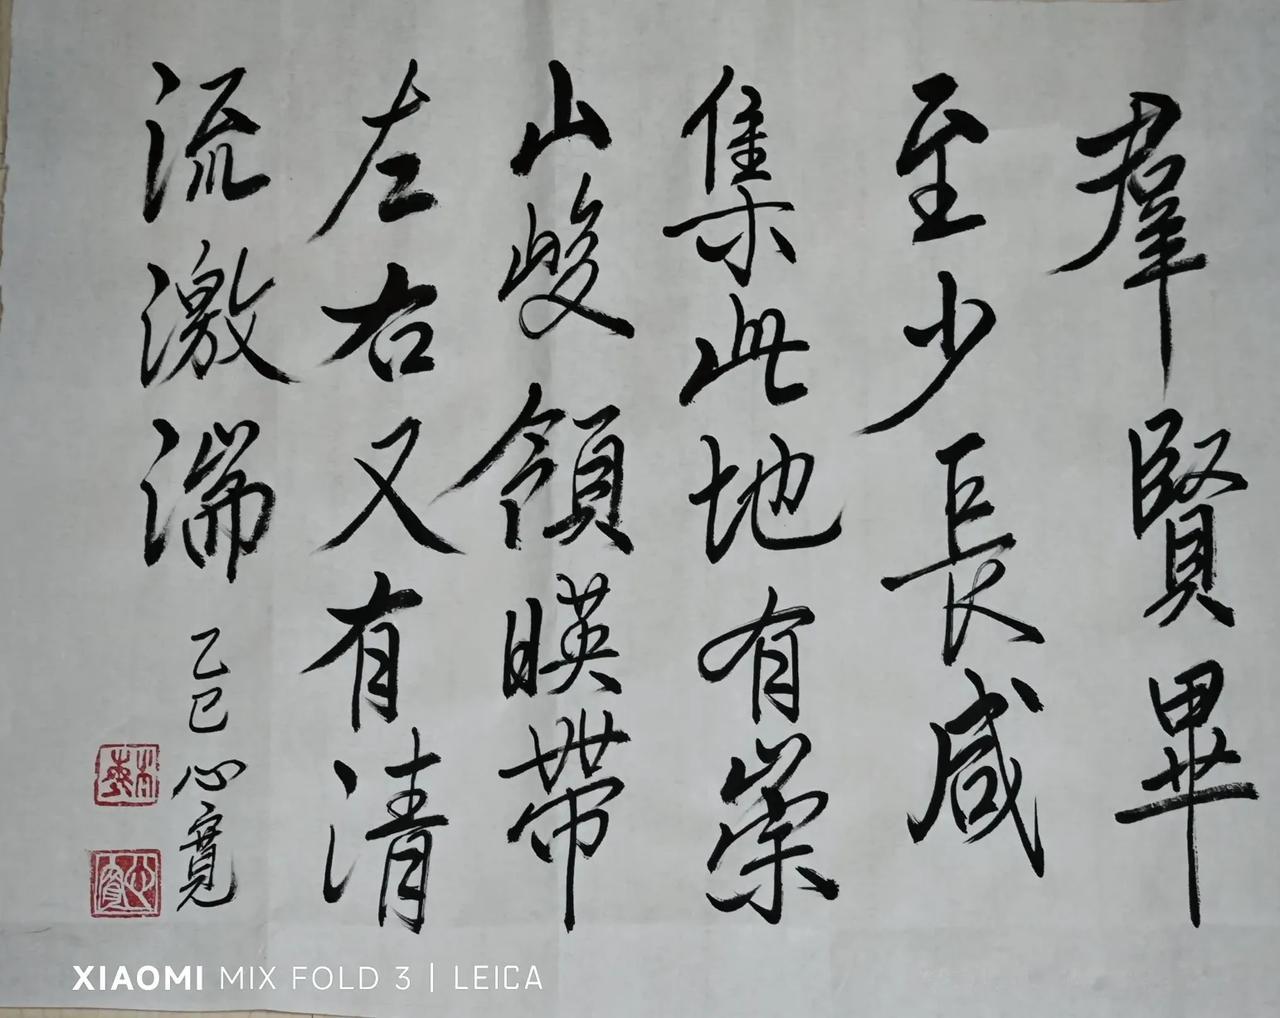 羣賢畢
至少長咸
集此地有崇
山峻領暎帶
左右又有清
流激湍
乙巳心寬
XIAOMI MIX FOLD 3 | LEICA